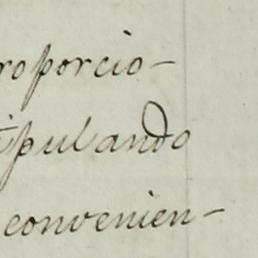 roporcio-
ipulando
convenien-